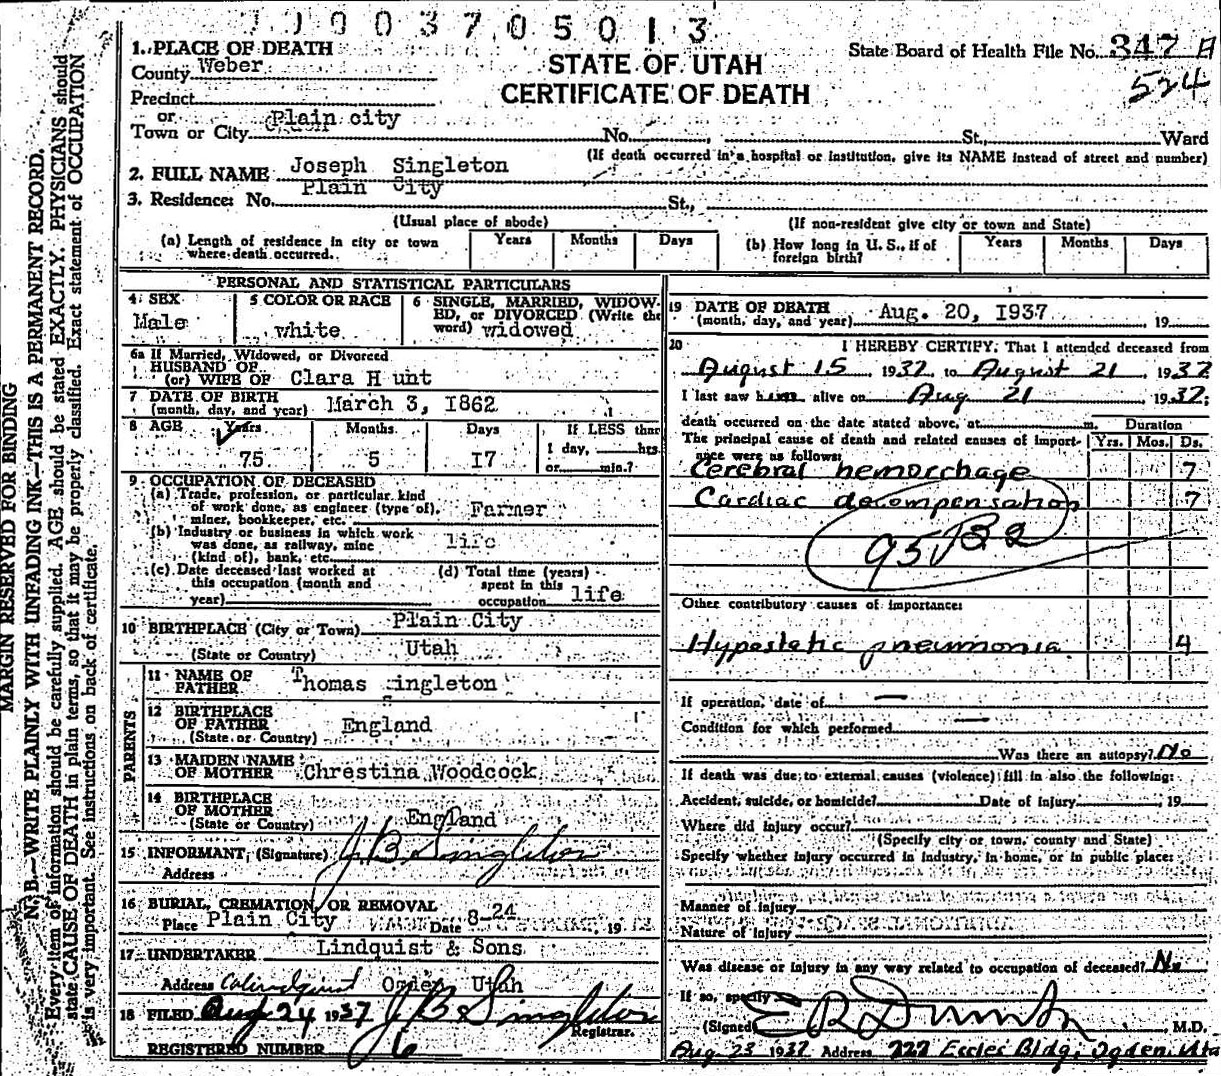 1003705013
1. PLACE OF DEATH
County Weber
STATE OF UTAH
State Board of Health File No. 347 A
524
Precinct
CERTIFICATE OF DEATH
or
Town or City Plain city No. St., Ward
(If death occurred in a hospital or institution, give its NAME instead of street and number)
2. FULL NAME Joseph Singleton
3. Residence: No. Plain City St.,
(Usual place of abode) (If non-resident give city or town and State)
(a) Length of residence in city or town where death occurred. Years Months Days
(b) How long in U. S., if of foreign birth? Years Months Days
PERSONAL AND STATISTICAL PARTICULARS
4. SEX Male
5 COLOR OR RACE white
6 SINGLE, MARRIED, WIDOWED, or DIVORCED (Write the word) widowed
6a If Married, Widowed, or Divorced
HUSBAND OF
(or) WIFE OF Clara H unt
7 DATE OF BIRTH
(month, day, and year) March 3, 1862
8 AGE Years Months Days If LESS than
75 5 17 1 day, hrs.
or min.?
9. OCCUPATION OF DECEASED
(a) Trade, profession, or particular kind
of work done, as engineer (type of), Farmer
miner, bookkeeper, etc.
(b) Industry or business in which work
was done, as railway, mine life
(kind of), bank, etc.
(c) Date deceased last worked at
this occupation (month and
year)
(d) Total time (years)
spent in this
occupation life
10 BIRTHPLACE (City or Town) Plain City
(State or Country) Utah
PARENTS
11 NAME OF
FATHER Thomas Singleton
12 BIRTHPLACE
OF FATHER England
(State or Country)
13 MAIDEN NAME
OF MOTHER Chrestina Woodcock
14 BIRTHPLACE
OF MOTHER
(State or Country) England
15 INFORMANT, (Signature) J. B. Singleton
Address
16 BURIAL, CREMATION, OR REMOVAL
Place Plain City Date 8-24, 19
17 UNDERTAKER Lindquist & Sons
Address Ogden Utah
18 FILED Aug 24 1937 J B Singleton
Registrar.
REGISTERED NUMBER 6
19 DATE OF DEATH
(month, day, and year) Aug. 20, 1937 19
20 I HEREBY CERTIFY, That I attended deceased from
August 15, 1937, to August 21, 1937
I last saw him alive on Aug 21 1937;
death occurred on the date stated above, at m. Duration
The principal cause of death and related causes of importance were as follows: Yrs. Mos. Ds.
Cerebral hemorrhage 7
Cardiac decompensation 7
95 B2
Other contributory causes of importance:
Hypostatic pneumonia. 4
If operation, date of —
Condition for which performed —
Was there an autopsy? No
If death was due to external causes (violence) fill in also the following:
Accident, suicide, or homicide? Date of injury , 19
Where did injury occur?
(Specify city or town, county and State)
Specify whether injury occurred in industry, in home, or in public place:
Manner of injury
Nature of injury
Was disease or injury in any way related to occupation of deceased? No
If so, specify
(Signed) , M.D.
Aug 23 1937 Address 722 Eccles Bldg, Ogden, Uta
MARGIN RESERVED FOR BINDING
N. B.—WRITE PLAINLY WITH UNFADING INK—THIS IS A PERMANENT RECORD.
Every item of information should be carefully supplied. AGE should be stated EXACTLY. PHYSICIANS should
state CAUSE OF DEATH in plain terms, so that it may be properly classified. Exact statement of OCCUPATION
is very important. See instructions on back of certificate.